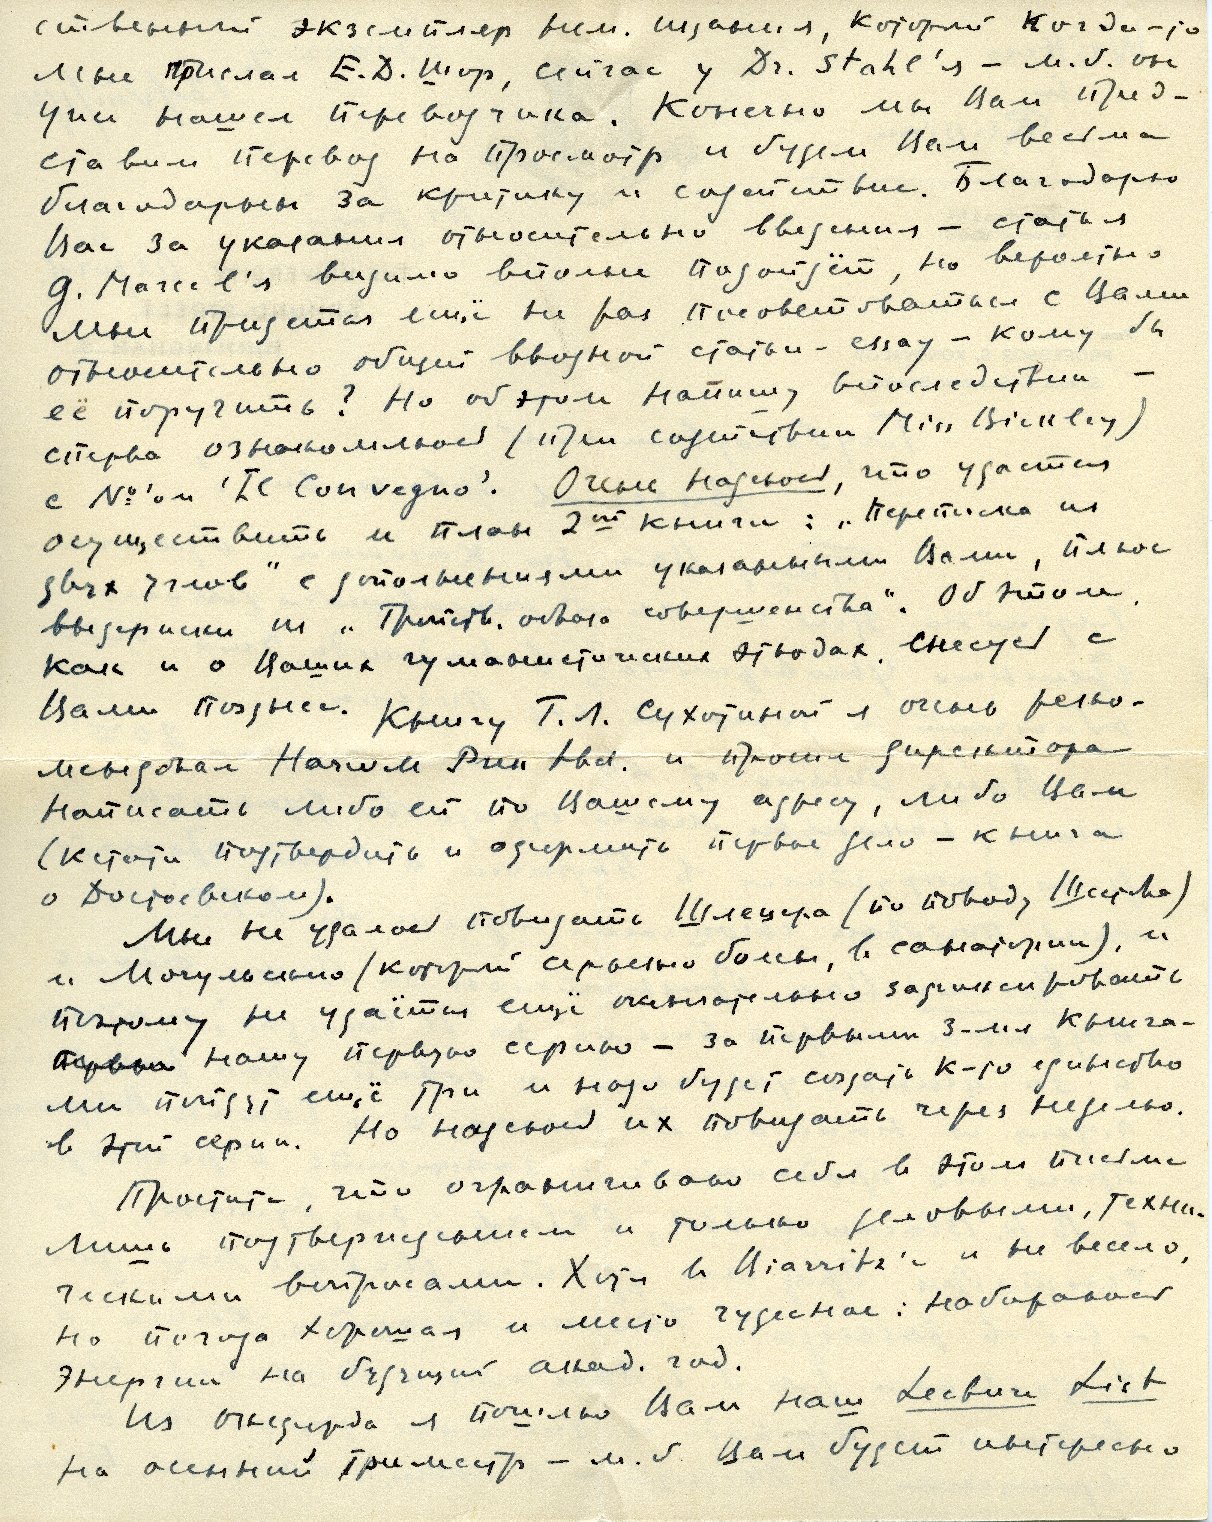 ственный экземпляр нем. издания, который когда-то
мне прислал Е.Д. Шор, сейчас у Dr. Stahl'я – м.б. он
уже нашел переводчика. Конечно мы Вам пред-
ставим перевод на просмотр и будем Вам весьма
благодарны за критику и содействие. Благодарю
Вас за указания относительно введения – статья
G. Marcel'я видимо вполне подойдёт, но вероятно
мне придется ещё не раз посоветоваться с Вами
относительно общей вводной статьи – essay – кому бы
её поручить? Но об этом напишу впоследствии –
сперва ознакомлюсь (при содействии Miss Bickley)
с №'ом 'Il Convegno'. Очень надеюсь, что удастся
осуществить и план 2ой книги: „Переписка из
двух углов" с дополнениями указанными Вами, плюс
выдержки из „ совершенства". Об этом,
как и о Ваших гуманистических этюдах, снесусь с
Вами позднее. Книгу Т.Л. Сухотиной я очень реко-
мендовал Harvill Press Ltd. и просил директора
написать либо ей по Вашему адресу, либо Вам
(кстати подтвердить и оформить первое дело – книга
о Достоевском).
Мне не удалось повидать Шлецера (по поводу Шестова)
и Мочульского (который серьезно болен, в санатории), и
поэтому не удаётся ещё окончательно зафиксировать
нашу первую серию – за первыми 3-мя книга-
ми пойдут ещё три и надо будет создать к-то единство
в этой серии. Но надеюсь их повидать через неделю.
Простите, что ограничиваю себя в этом письме
лишь подтверждением и только деловыми, техни-
ческими вопросами. Хотя в Biarritz'е и не весело,
но погода хорошая и место чудесное: набираюсь
энергии на будущий акад. год.
Из Оксфорда я пошлю Вам наш Lecture List
на осенний триместр – м.б. Вам будет интересно